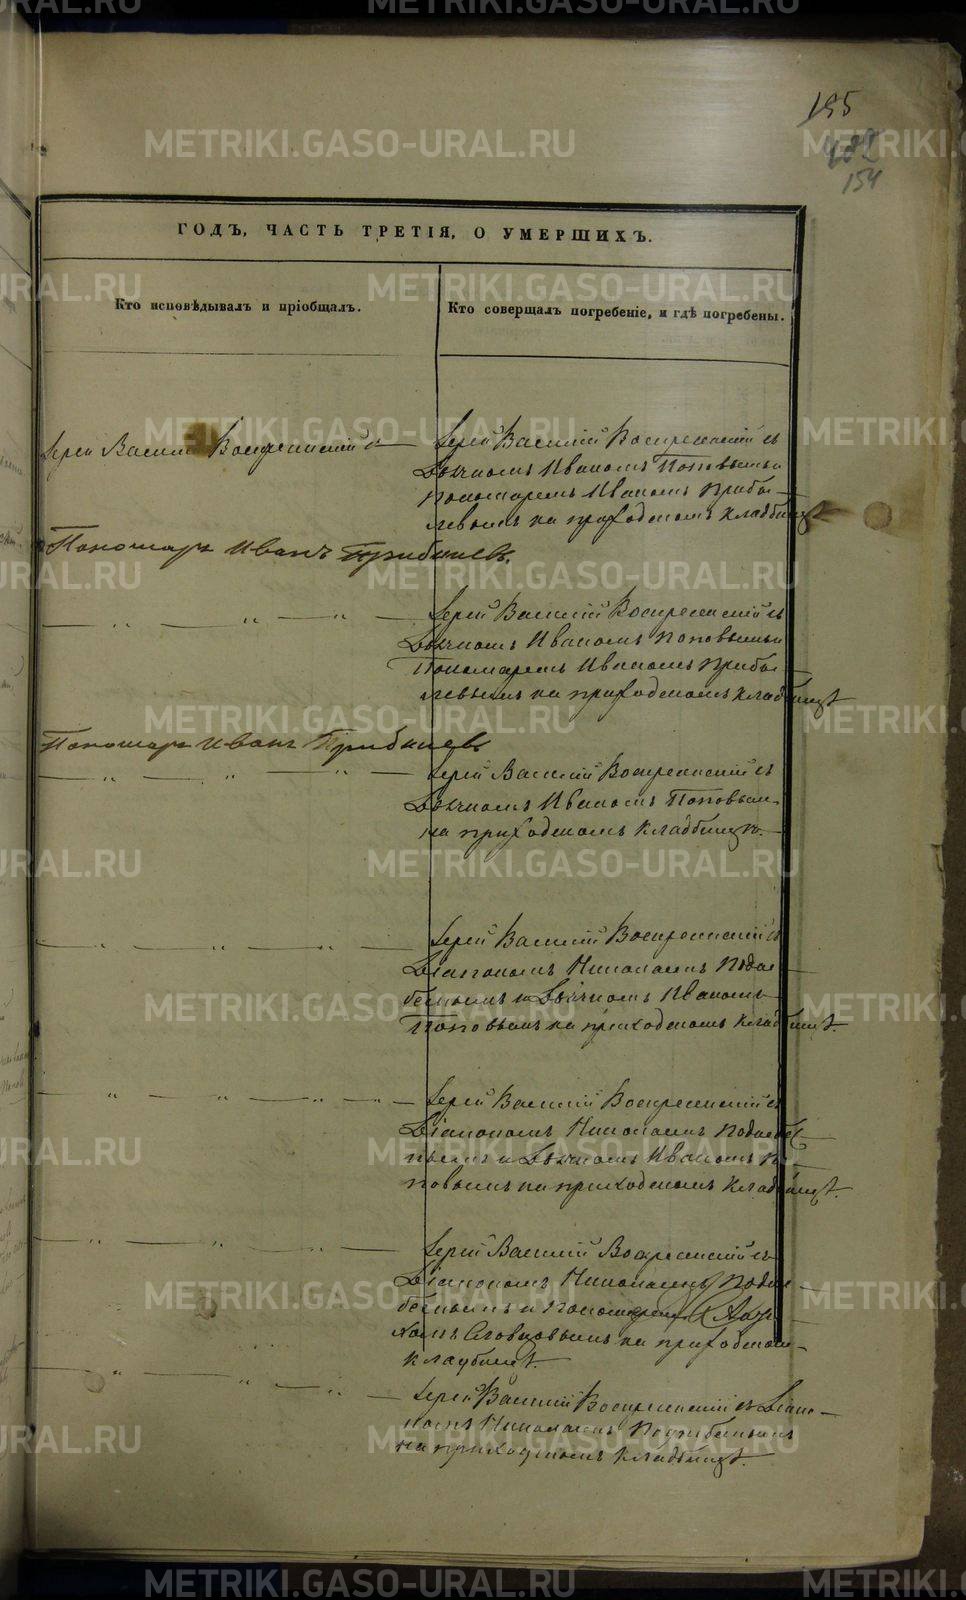 195
482
154
ГОДЪ, ЧАСТЬ ТРЕТІЯ, О УМЕРШИХЪ.
Кто исповѣдывалъ и пріобщалъ.
Кто совершалъ погребеніе, и гдѣ погребены.
Іерей Василій Воскресенскій
Іерей Василій Воскресенскій съ
Дьячкомъ Иваномъ Поповымъ и
пономаремъ Иваномъ Прибы-
левымъ на приходскомъ кладбищѣ
Пономарь Иванъ Прибылевъ.
Іерей Василій Воскресенскій съ
Дьячкомъ Иваномъ Поповымъ и
Пономаремъ Иваномъ Прибы-
левымъ на приходскомъ кладбищѣ
Пономарь Иванъ Прибылевъ
Іерей Василій Воскресенскій съ
Дьячкомъ Иваномъ Поповым-
на приходскомъ кладбищѣ.
Іерей Василій Воскресенскій съ
Діакономъ Николаемъ
и Дьячкомъ Иваномъ
Поповымъ на приходскомъ кладбищѣ.
Іерей Василій Воскресенскій съ
Діакономъ Николаемъ
и Дьячкомъ Иваномъ По-
повымъ на приходскомъ кладбищѣ.
Іерей Василій Воскресенскій съ
Діакономъ Николаемъ
и Пономаремъ
Словцовымъ на приходском-
кладбищѣ.
Іерей Василій Воскресенскій съ Діако-
номъ Николаемъ
на приходскомъ кладбищѣ.
METRIKI.GASO-URAL.RU